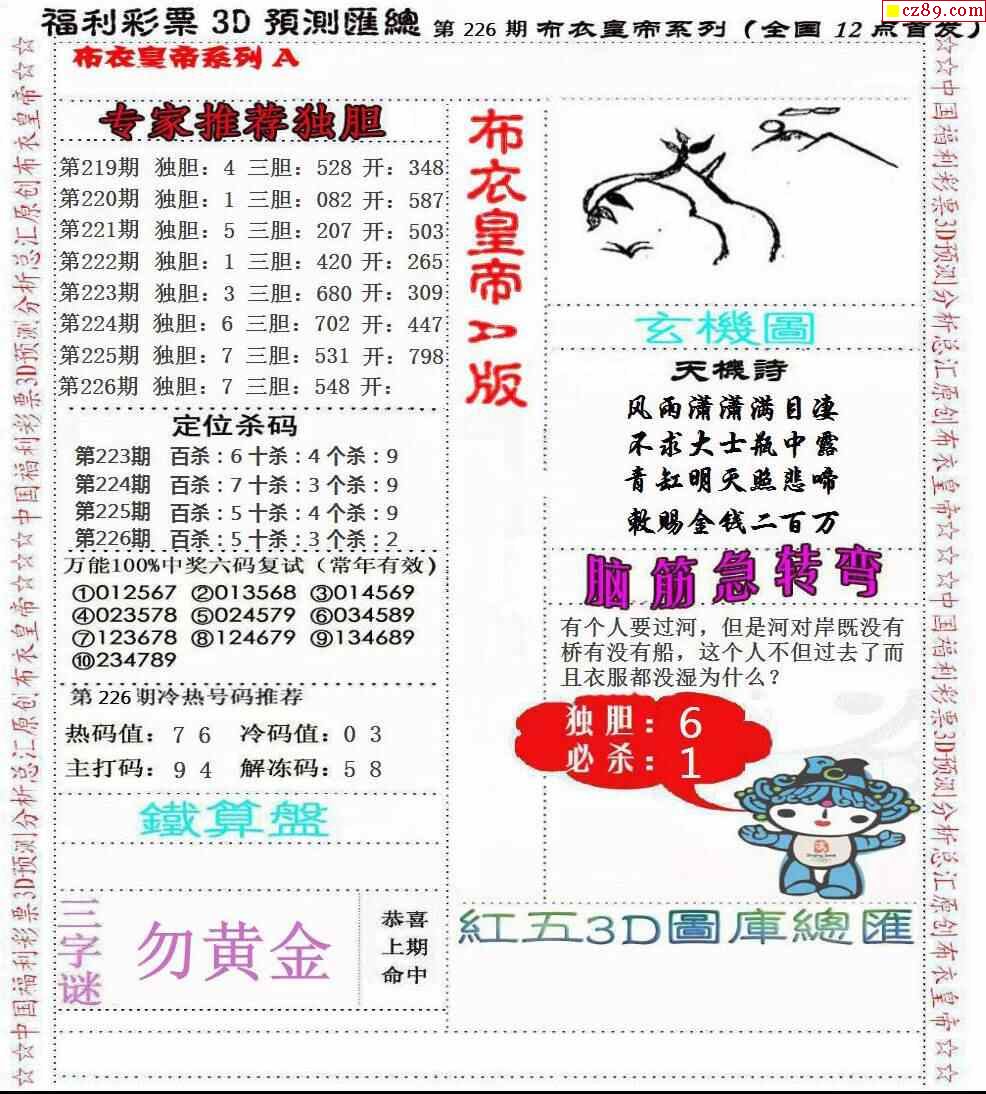 cz89.com
福利彩票 3D 預測匯總 第 226 期 布衣皇帝系列 (全国 12 点首发)
布衣皇帝系列 A
专家推荐独胆
第219期 独胆: 4 三胆: 528 开: 348
第220期 独胆: 1 三胆: 082 开: 587
第221期 独胆: 5 三胆: 207 开: 503
第222期 独胆: 1 三胆: 420 开: 265
第223期 独胆: 3 三胆: 680 开: 309
第224期 独胆: 6 三胆: 702 开: 447
第225期 独胆: 7 三胆: 531 开: 798
第226期 独胆: 7 三胆: 548 开:
定位杀码
第223期 百杀:6 十杀:4 个杀:9
第224期 百杀:7 十杀:3 个杀:9
第225期 百杀:5 十杀:4 个杀:9
第226期 百杀:5 十杀:3 个杀:2
万能100%中奖六码复试 (常年有效)
①012567 ②013568 ③014569
④023578 ⑤024579 ⑥034589
⑦123678 ⑧124679 ⑨134689
⑩234789
第 226 期冷热号码推荐
热码值: 7 6 冷码值: 0 3
主打码: 9 4 解冻码: 5 8
鐵算盤
三字谜
勿黄金
恭喜
上期
命中
布衣皇帝A版
玄機圖
天機詩
风雨潇潇满目凄
不求大士瓶中露
青缸明灭照悲啼
敕赐金钱二百万
脑筋急转弯
有个人要过河，但是河对岸既没有
桥有没有船，这个人不但过去了而
且衣服都没湿为什么？
独胆: 6
必杀: 1
紅五3D圖庫總匯
☆☆中国福利彩票3D预测分析总汇原创布衣皇帝☆☆中国福利彩票3D预测分析总汇原创布衣皇帝☆☆
☆☆中国福利彩票3D预测分析总汇原创布衣皇帝☆☆中国福利彩票3D预测分析总汇原创布衣皇帝☆☆